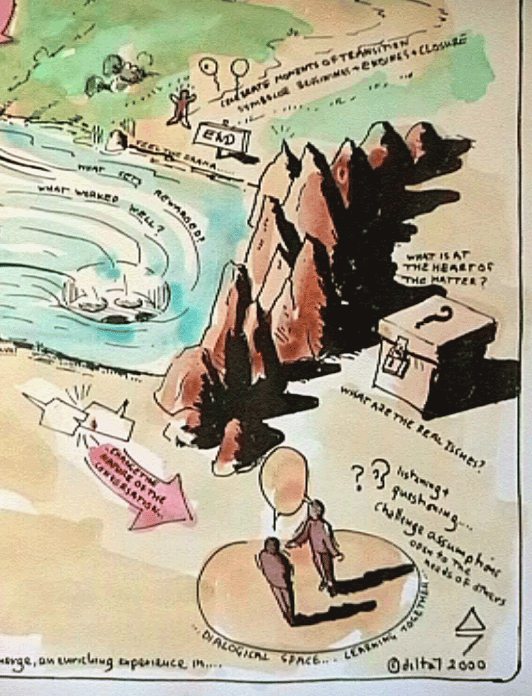 CELEBRATE MOMENTS OF TRANSITION
SYMBOLISE BEGINNINGS + ENDINGS + CLOSURE
END
FEEL THE DRAMA....
WHAT GETS REWARDED?
WHAT WORKED WELL?
WHAT IS AT
THE HEART OF
THE MATTER?
?
WHAT ARE THE REAL ISSUES?
CHANGE THE
NATURE OF THE
CONVERSATION..
? ?
listening +
questioning....
challenge assumptions
open to the
needs of others
...DIALOGICAL SPACE... LEARNING TOGETHER...
merge, an enriching experience in.....
© 2000